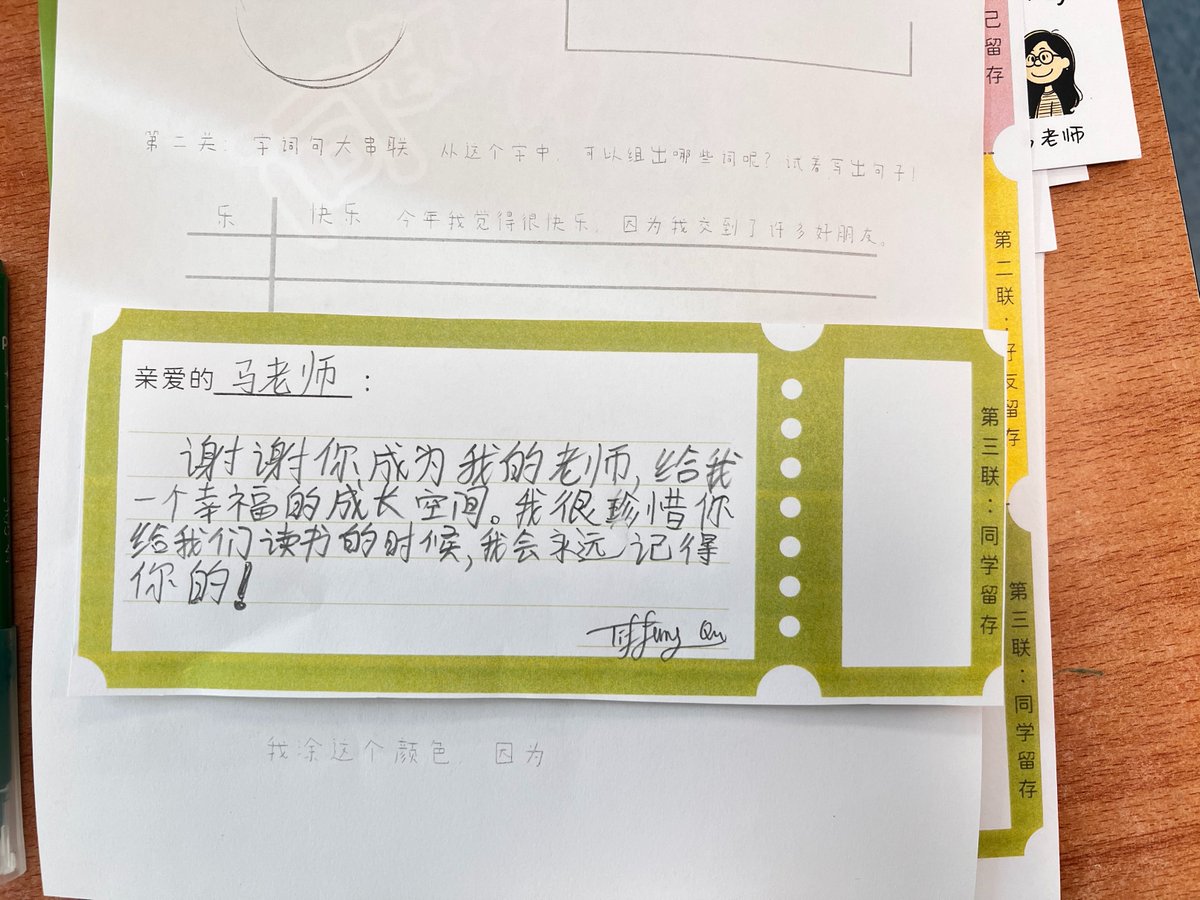 己留存
老师
第二关：字词句大串联 从这个字中，可以组出哪些词呢？试着写出句子！
乐 快乐 今年我觉得很快乐，因为我交到了许多好朋友。
第二联：好友留存
亲爱的马老师：
谢谢你成为我的老师，给我
一个幸福的成长空间。我很珍惜你
给我们读书的时候，我会永远记得
你的！
Tiffany Qu
第三联：同学留存
第三联：同学留存
我涂这个颜色，因为